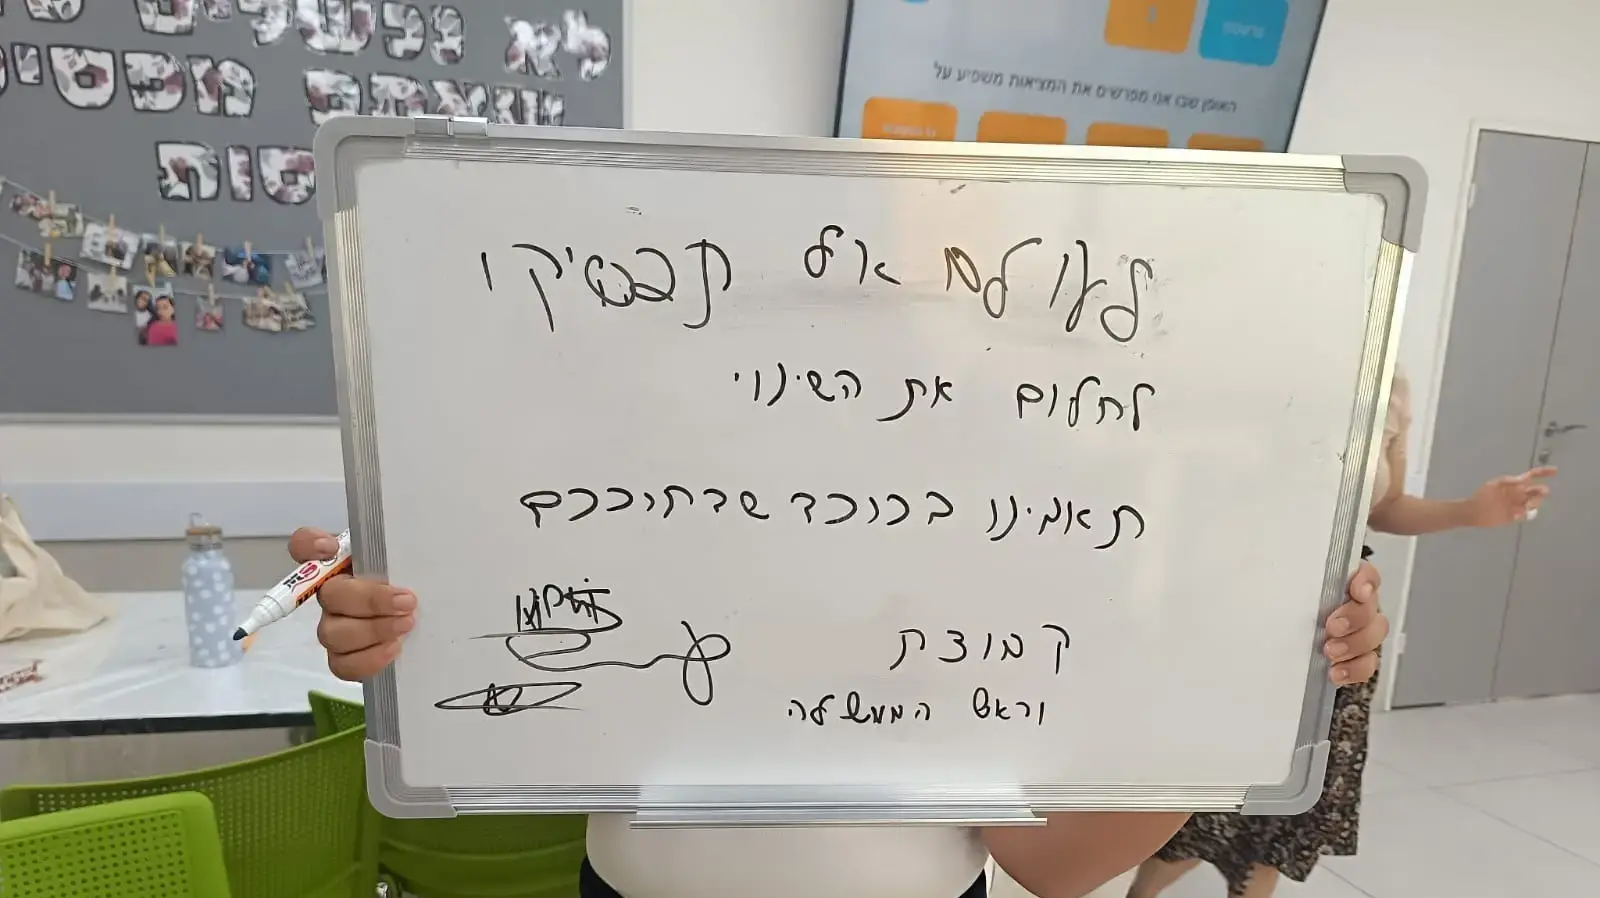 לא נכשלים
שאתם מפסיקים
האופן שבו אני מפרשים את המציאות משפיע על
לעולם אל תפסיקו
לחלום את השינוי
תאמינו בכוכב שבתוככם
קבוצת
וראש הממשלה